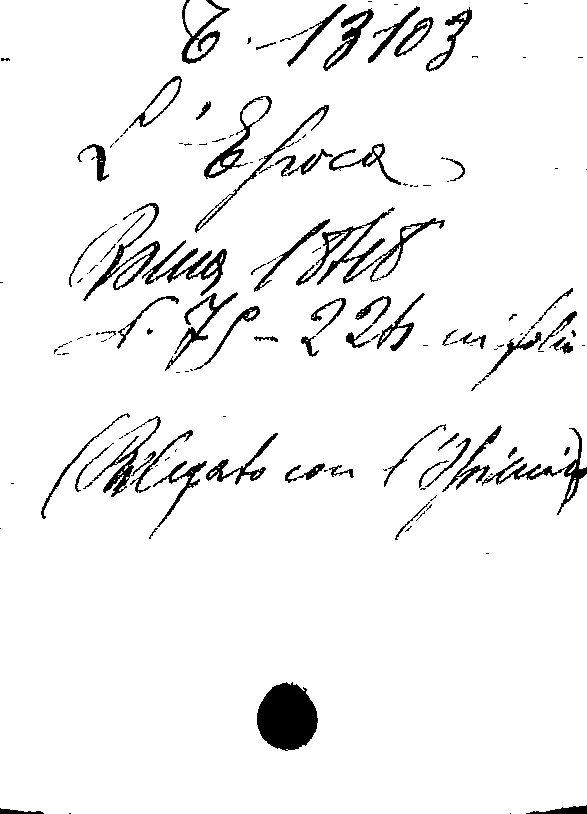 13103
L'Epoca
Roma 1848
N. 75-224 in folio
(Rilegato con